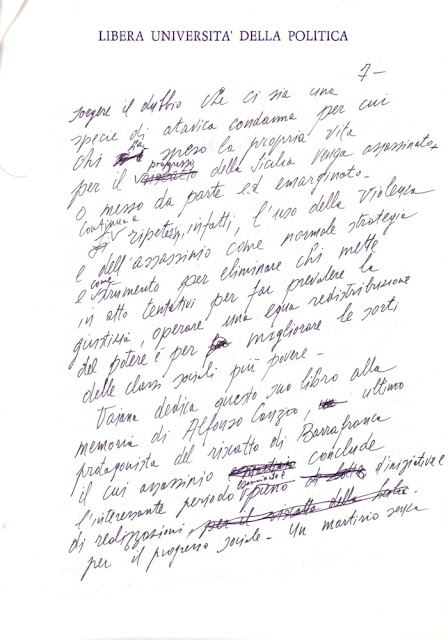 LIBERA UNIVERSITA' DELLA POLITICA
7-
sorgere il dubbio che ci sia una
specie di atavica condanna per cui
chi ha speso la propria vita
per il progresso della Sicilia venga assassinato
o messo da parte ed emarginato-
Continua a
ripetersi, infatti, l'uso della violenza
e dell'assassinio come normale strategia
e come strumento per eliminare chi mette
in atto tentativi per far prevalere la
giustizia, operare una equa redistribuzione
del potere e per migliorare le sorti
delle classi sociali più povere-
Vaiana dedica questo suo libro alla
memoria di Alfonso Canzio, ultimo
protagonista del riscatto di Barrafranca
il cui assassinio conclude
l'interessante periodo pieno d'iniziative e
di realizzazioni
per il progresso sociale- Un martirio senza